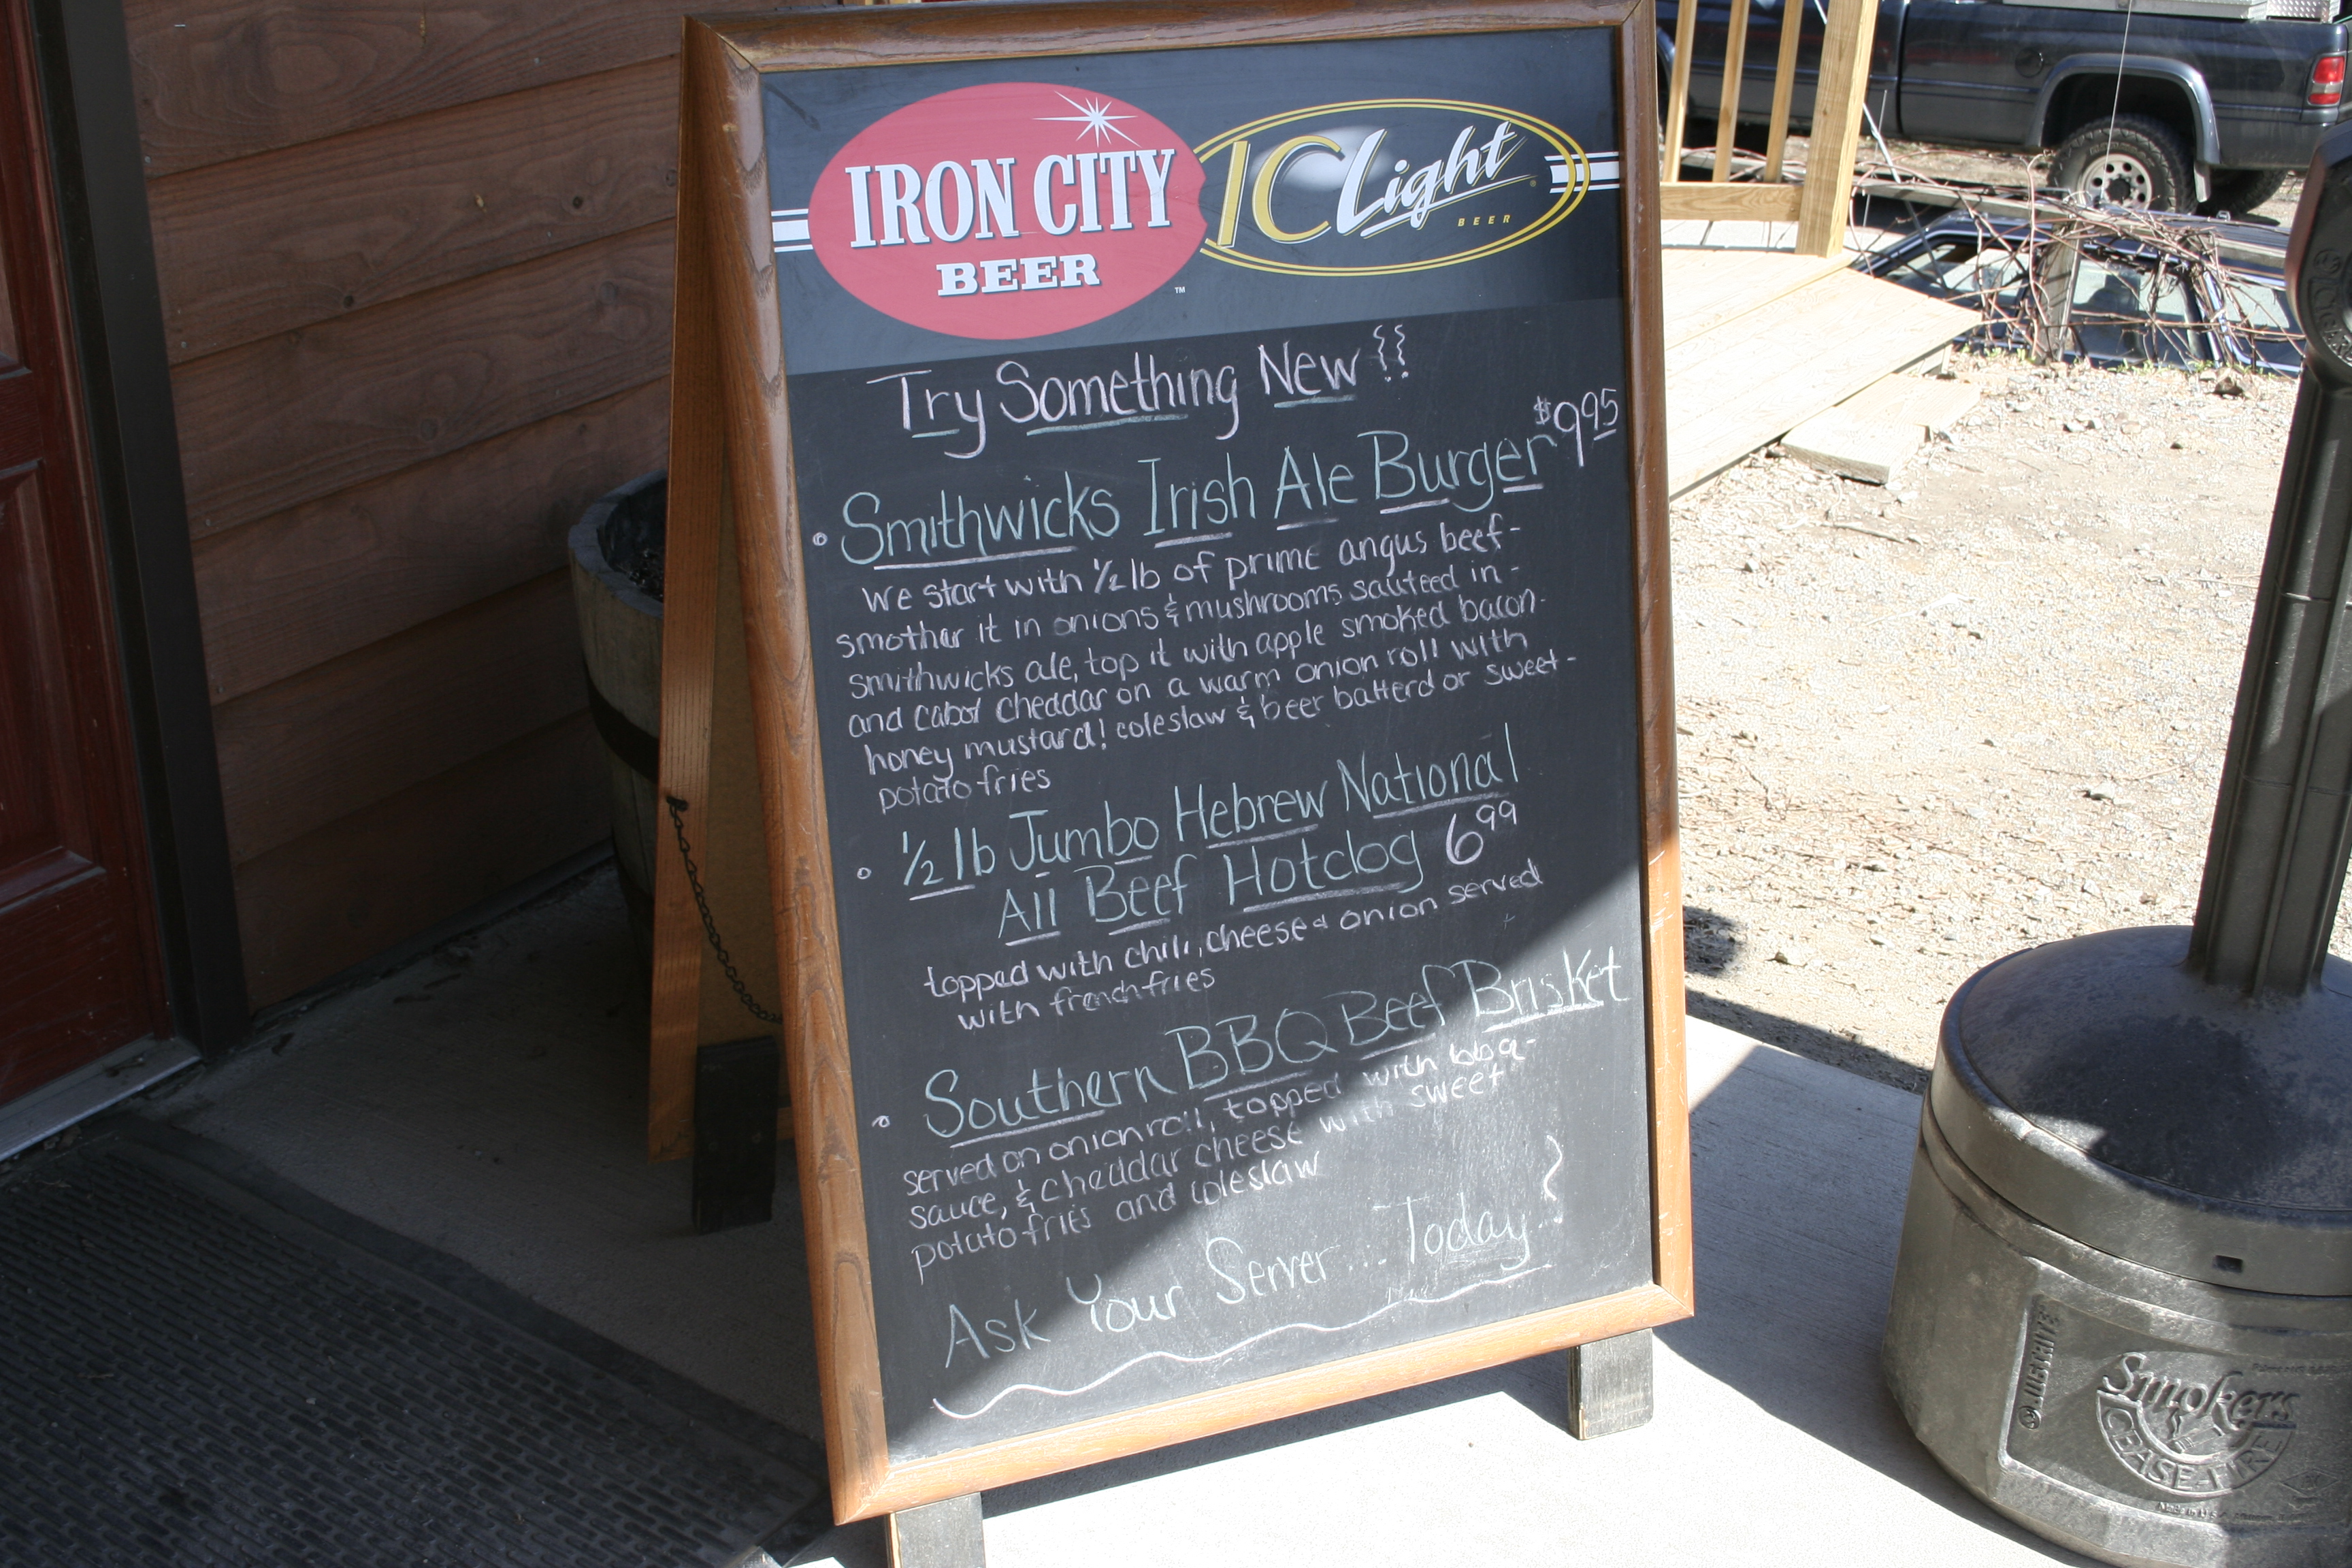 IRON CITY
BEER
TM
IC Light
BEER
Try Something New!!
• Smithwicks Irish Ale Burger $9.95
We start with 1/2 lb of prime angus beef-
smother it in onions & mushrooms sauteed in-
smithwicks ale, top it with apple smoked bacon-
and cabot cheddar on a warm onion roll with
honey mustard! coleslaw & beer batterd or sweet-
potato fries
• 1/2 lb Jumbo Hebrew National
All Beef Hotdog 6.99
topped with chili, cheese & onion served
with french fries
• Southern BBQ Beef Brisket
served on onion roll, topped with bbq-
sauce, & cheddar cheese with sweet
potato fries and coleslaw
Ask Your Server... Today!
JUSTRITE
Smokers
CEASE-FIRE